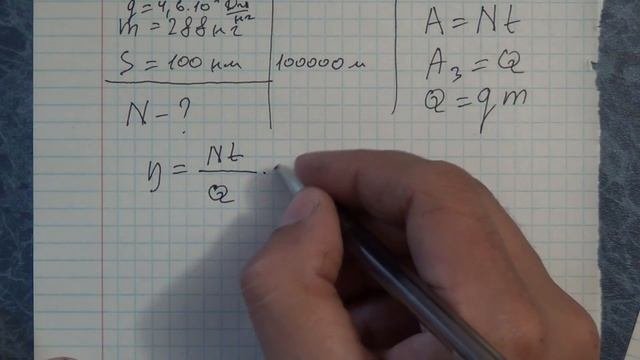 q = 4,6·10⁷ Дж/кг
m = 288 кг
S = 100 км 100000 м
N - ?
η = Nt / Q ·
A = Nt
A₃ = Q
Q = qm